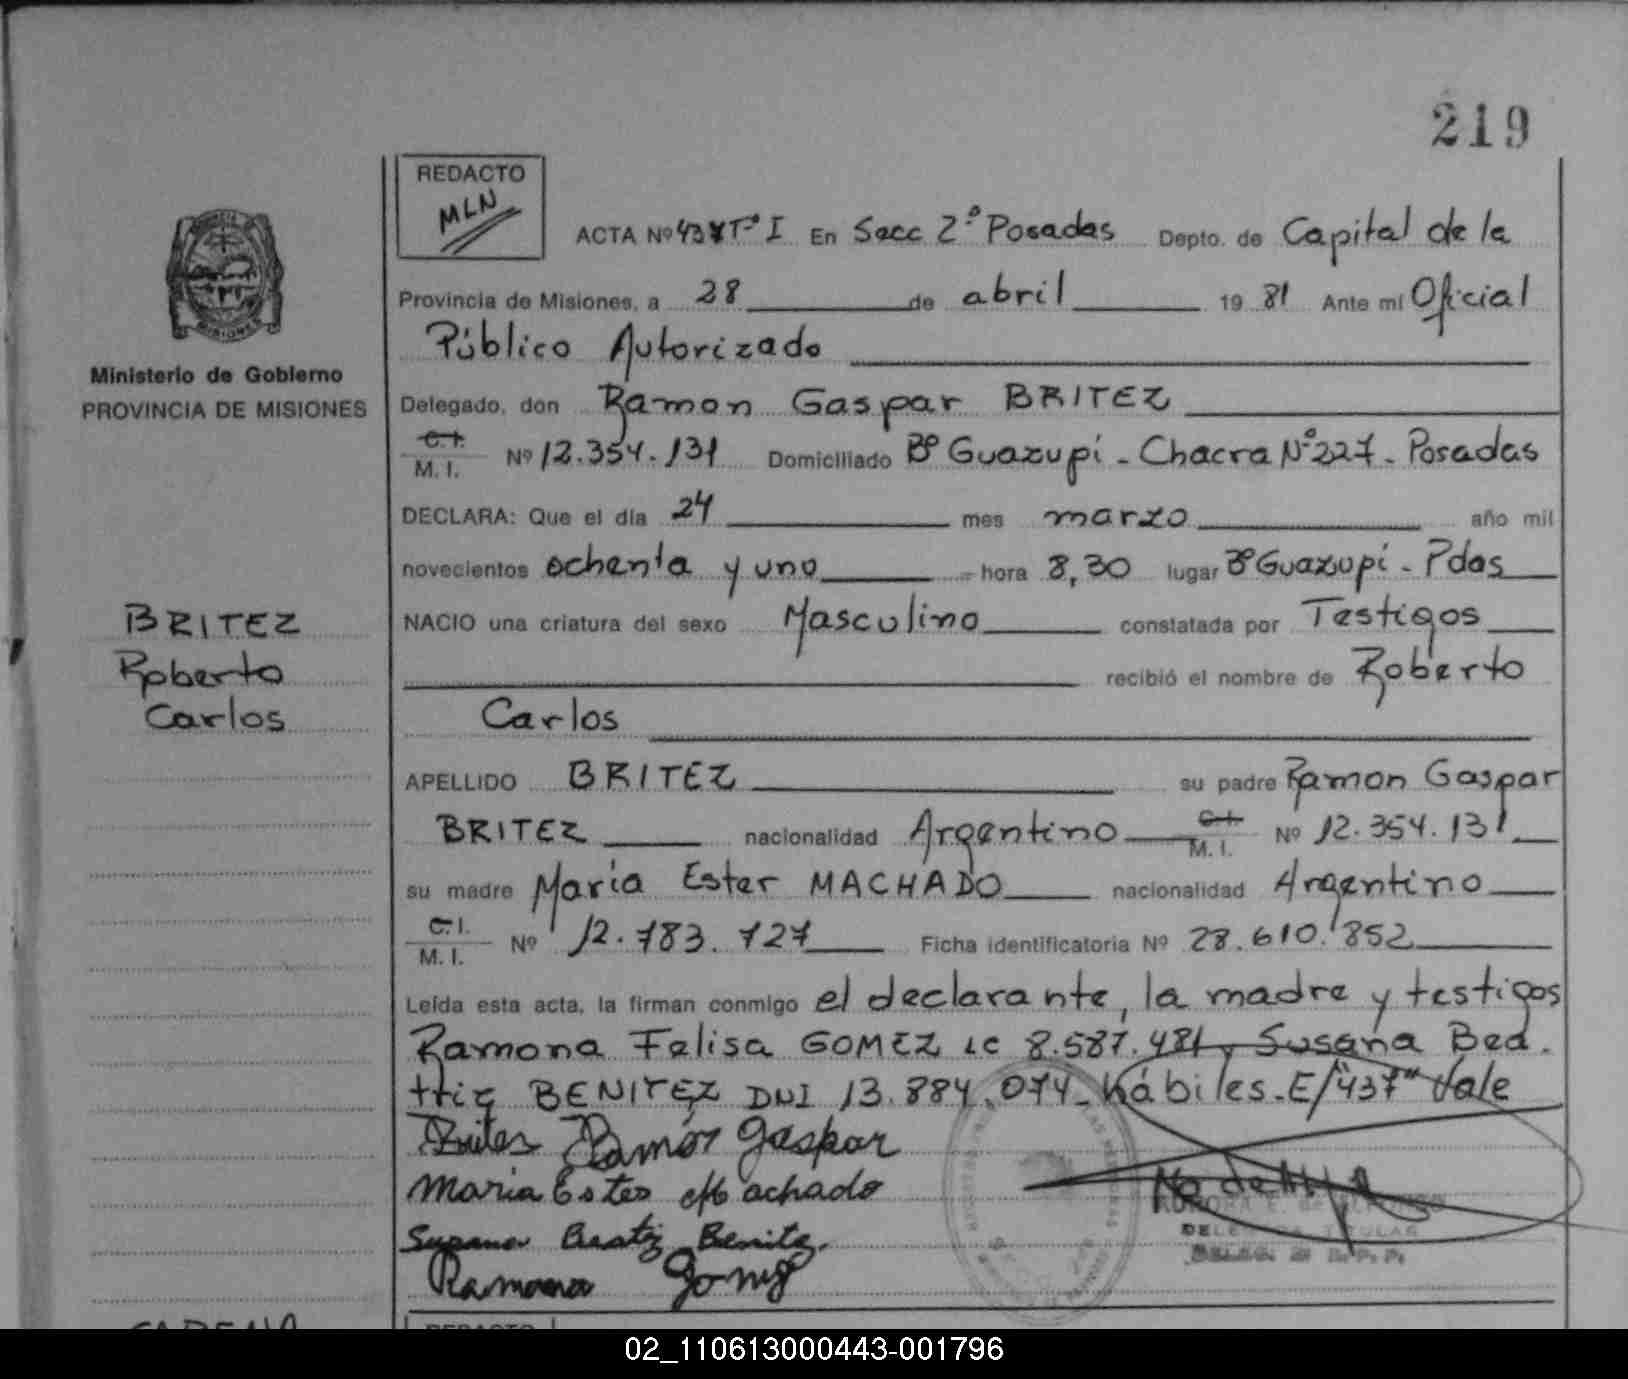 219
REDACTO
MLN
ACTA Nº 437 Tº I En Secc 2º Posadas Depto. de Capital de la
Provincia de Misiones, a 28 de abril 19 81 Ante mí Oficial
Público Autorizado
Ministerio de Gobierno
PROVINCIA DE MISIONES
Delegado, don Ramon Gaspar BRITEZ
C.I.
M. I. Nº 12.354.131 Domiciliado Bº Guazupi - Chacra Nº 227 - Posadas
DECLARA: Que el día 24 mes marzo año mil
novecientos ochenta y uno hora 8,30 lugar Bº Guazupi - Pdas
BRITEZ
Roberto
Carlos
NACIO una criatura del sexo Masculino constatada por Testigos
recibió el nombre de Roberto
Carlos
APELLIDO BRITEZ su padre Ramon Gaspar
BRITEZ nacionalidad Argentino C.I. M. I. Nº 12.354.131
su madre María Ester MACHADO nacionalidad Argentino
C.I.
M. I. Nº 12.783.727 Ficha identificatoria Nº 28.610.852
Leída esta acta, la firman conmigo el declarante, la madre y testigos
Ramona Felisa GOMEZ LC 8.587.481 y Susana Bea.
triz BENITEZ DNI 13.884.074 - hábiles - E/"437" Vale
Britez Ramón Gaspar
Maria Ester Machado
Susana Beatriz Benitez
Ramona Gomez
DELEGADA TITULAR
REDACTO
02_110613000443-001796